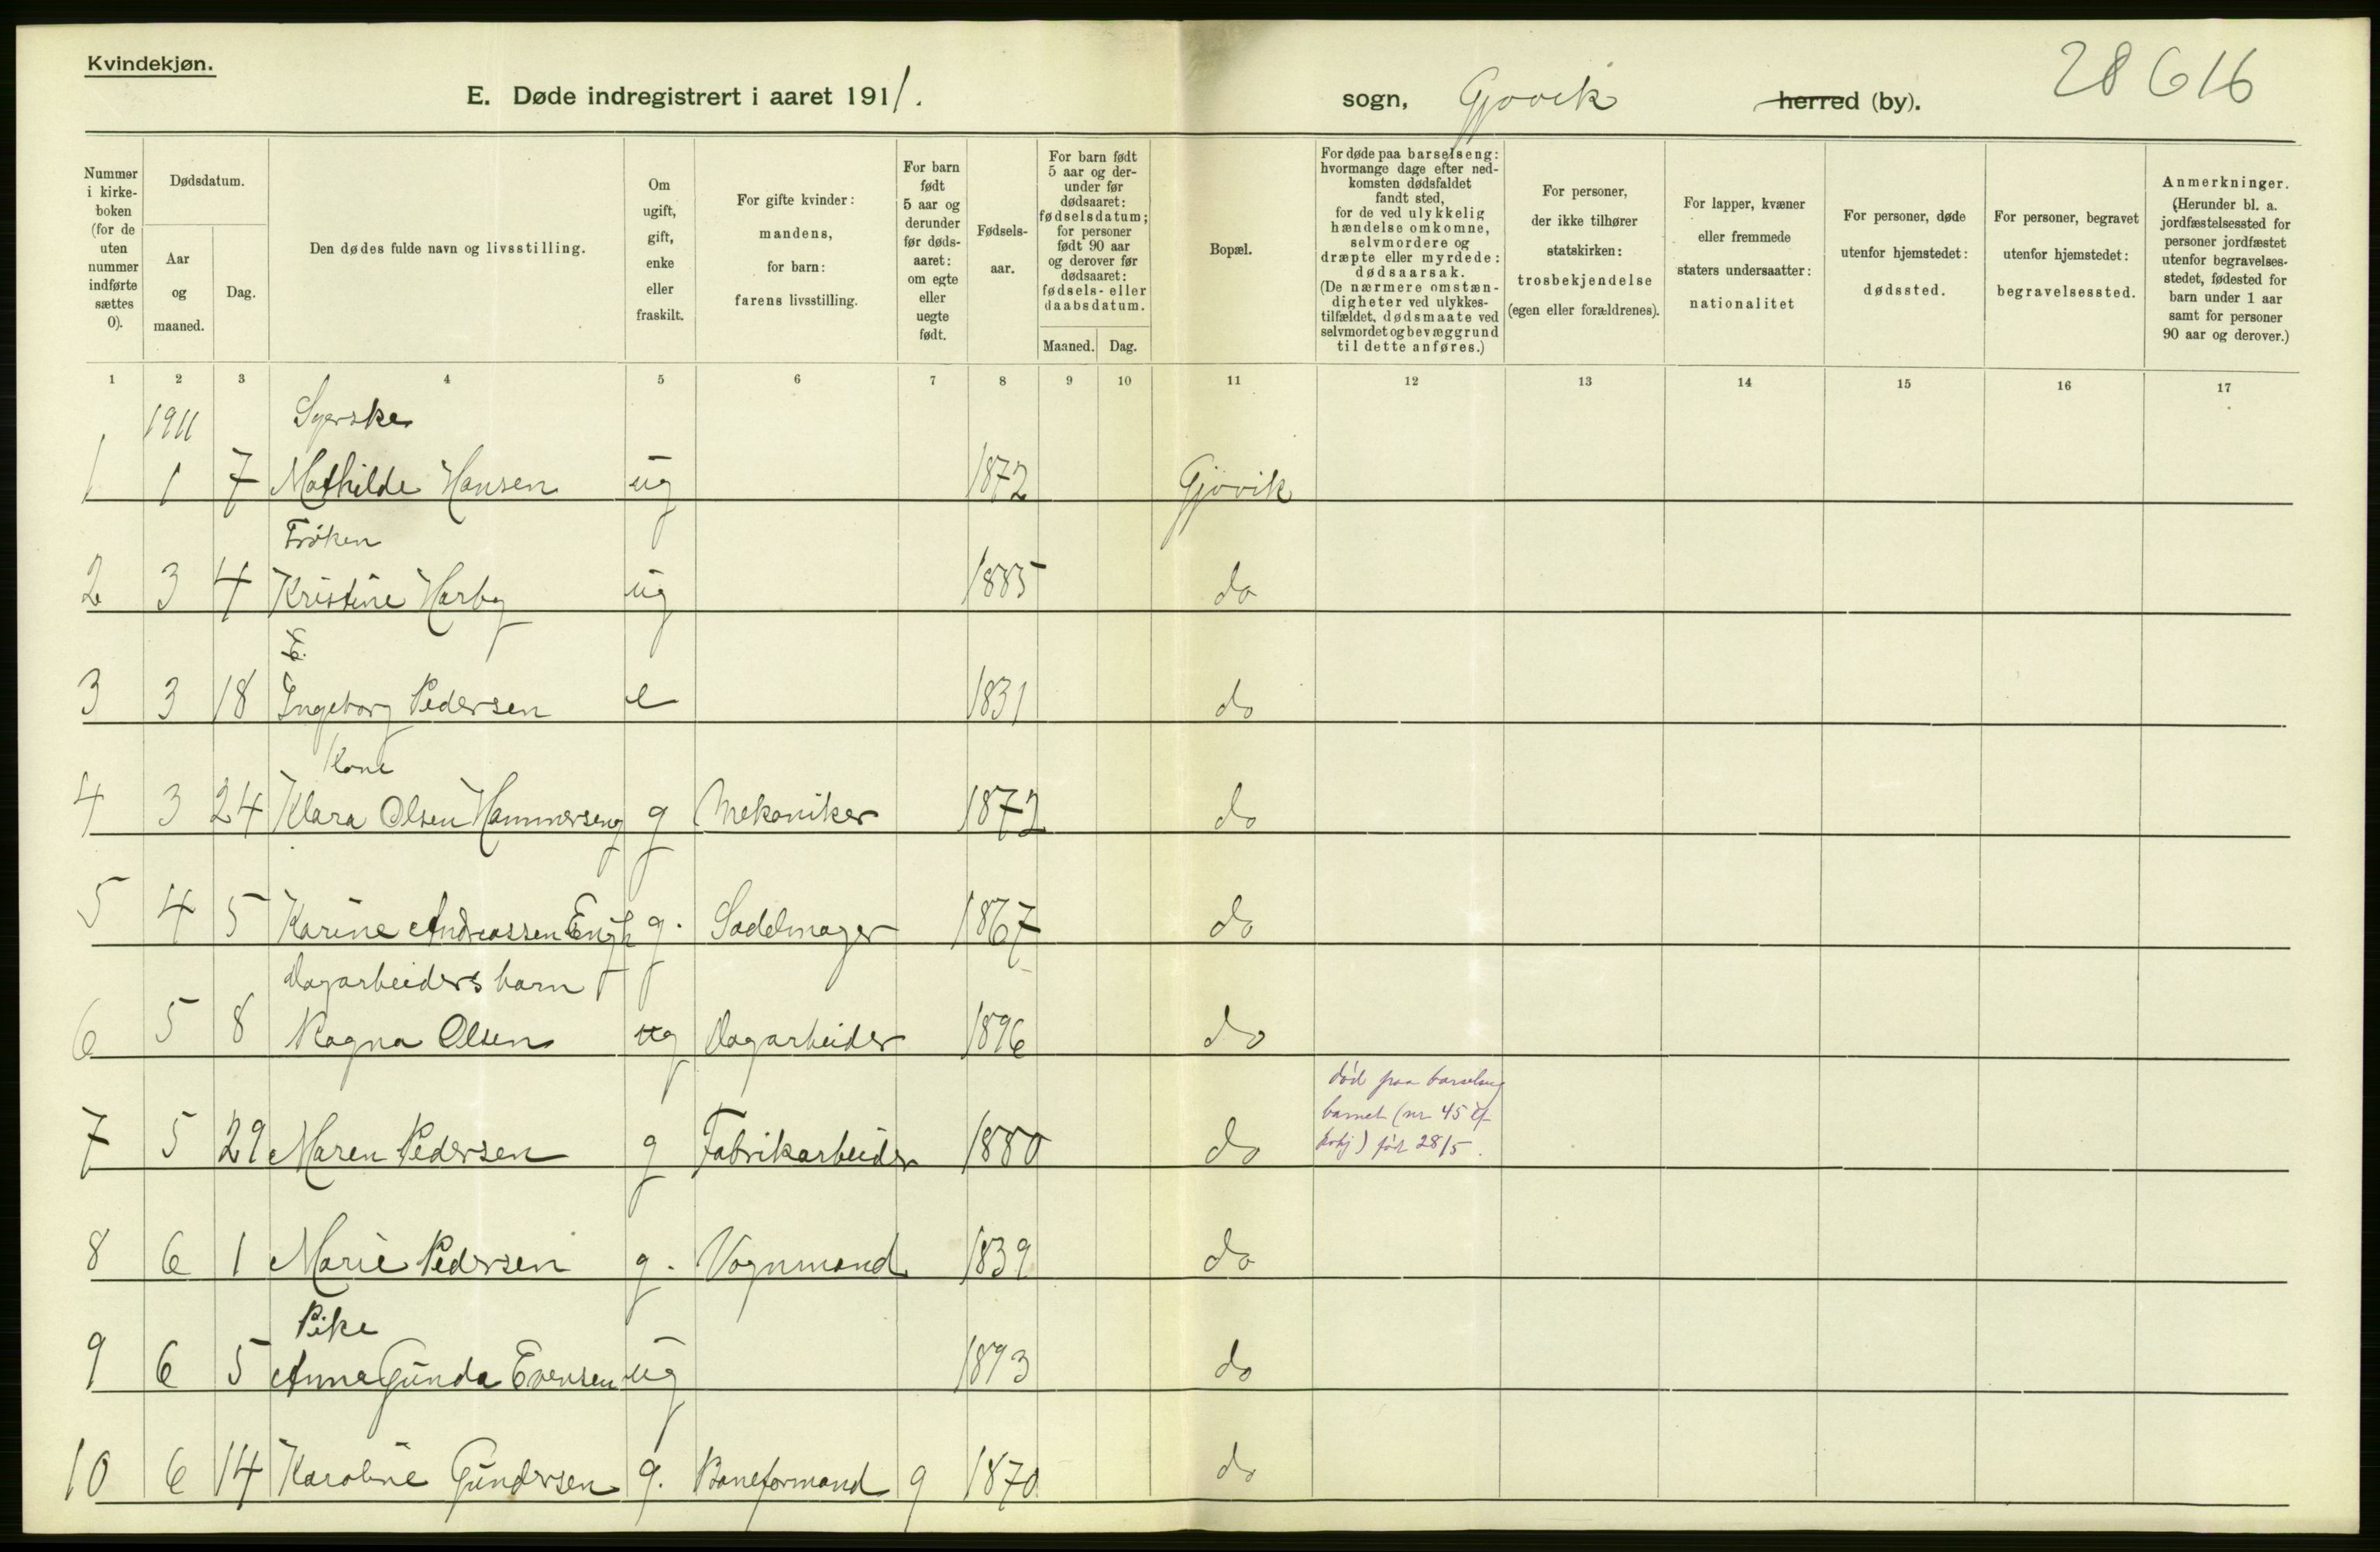 Kvindekjøn.
E. Døde indregistrert i aaret 1911.
sogn, Gjøvik herred (by).
28 616
Nummer i kirkeboken (for de uten nummer indførte sættes 0).
Dødsdatum.
Aar og maaned.
Dag.
Den dødes fulde navn og livsstilling.
Om ugift, gift, enke eller fraskilt.
For gifte kvinder: mandens, for barn: farens livsstilling.
For barn født 5 aar og derunder før dødsaaret: om egte eller uegte født.
Fødselsaar.
For barn født 5 aar og derunder før dødsaaret: fødselsdatum; for personer født 90 aar og derover før dødsaaret: fødsels- eller daabsdatum.
Maaned. Dag.
Bopæl.
For døde paa barselseng: hvormange dage efter nedkomsten dødsfaldet fandt sted, for de ved ulykkelig hændelse omkomne, selvmordere og dræpte eller myrdede: dødsaarsak. (De nærmere omstændigheter ved ulykkestilfældet, dødsmaate ved selvmordet og bevæggrund til dette anføres.)
For personer, der ikke tilhører statskirken: trosbekjendelse (egen eller forældrenes).
For lapper, kvæner eller fremmede staters undersaatter: nationalitet
For personer, døde utenfor hjemstedet: dødssted.
For personer, begravet utenfor hjemstedet: begravelsessted.
Anmerkninger. (Herunder bl. a. jordfæstelsessted for personer jordfæstet utenfor begravelsesstedet, fødested for barn under 1 aar samt for personer 90 aar og derover.)
1 2 3 4 5 6 7 8 9 10 11 12 13 14 15 16 17
1911 Syerske
1 1 7 Mathilde Hansen ug 1872 Gjøvik
Frøken
2 3 4 Kristine Harby ug 1885 do
E.
3 3 18 Ingeborg Pedersen e 1831 do
Kone
4 3 24 Klara Olsen Hammerseng g Mekaniker 1872 do
5 4 5 Karine Andreassen Engh g. Sadelmager 1867 do
Dagarbeiders barn
6 5 8 Ragna Olsen ug Dagarbeider 1896 do
død paa barselseng
barnet (nr 45
7 5 29 Maren Pedersen g Fabrikarbeider 1880 do født 28/5.
8 6 1 Marie Pedersen g. Vognmand 1839 do
Pike
9 6 5 Anna Gunda Evensen ug 1893 do
10 6 14 Karoline Gundersen g. Baneformand g 1870 do